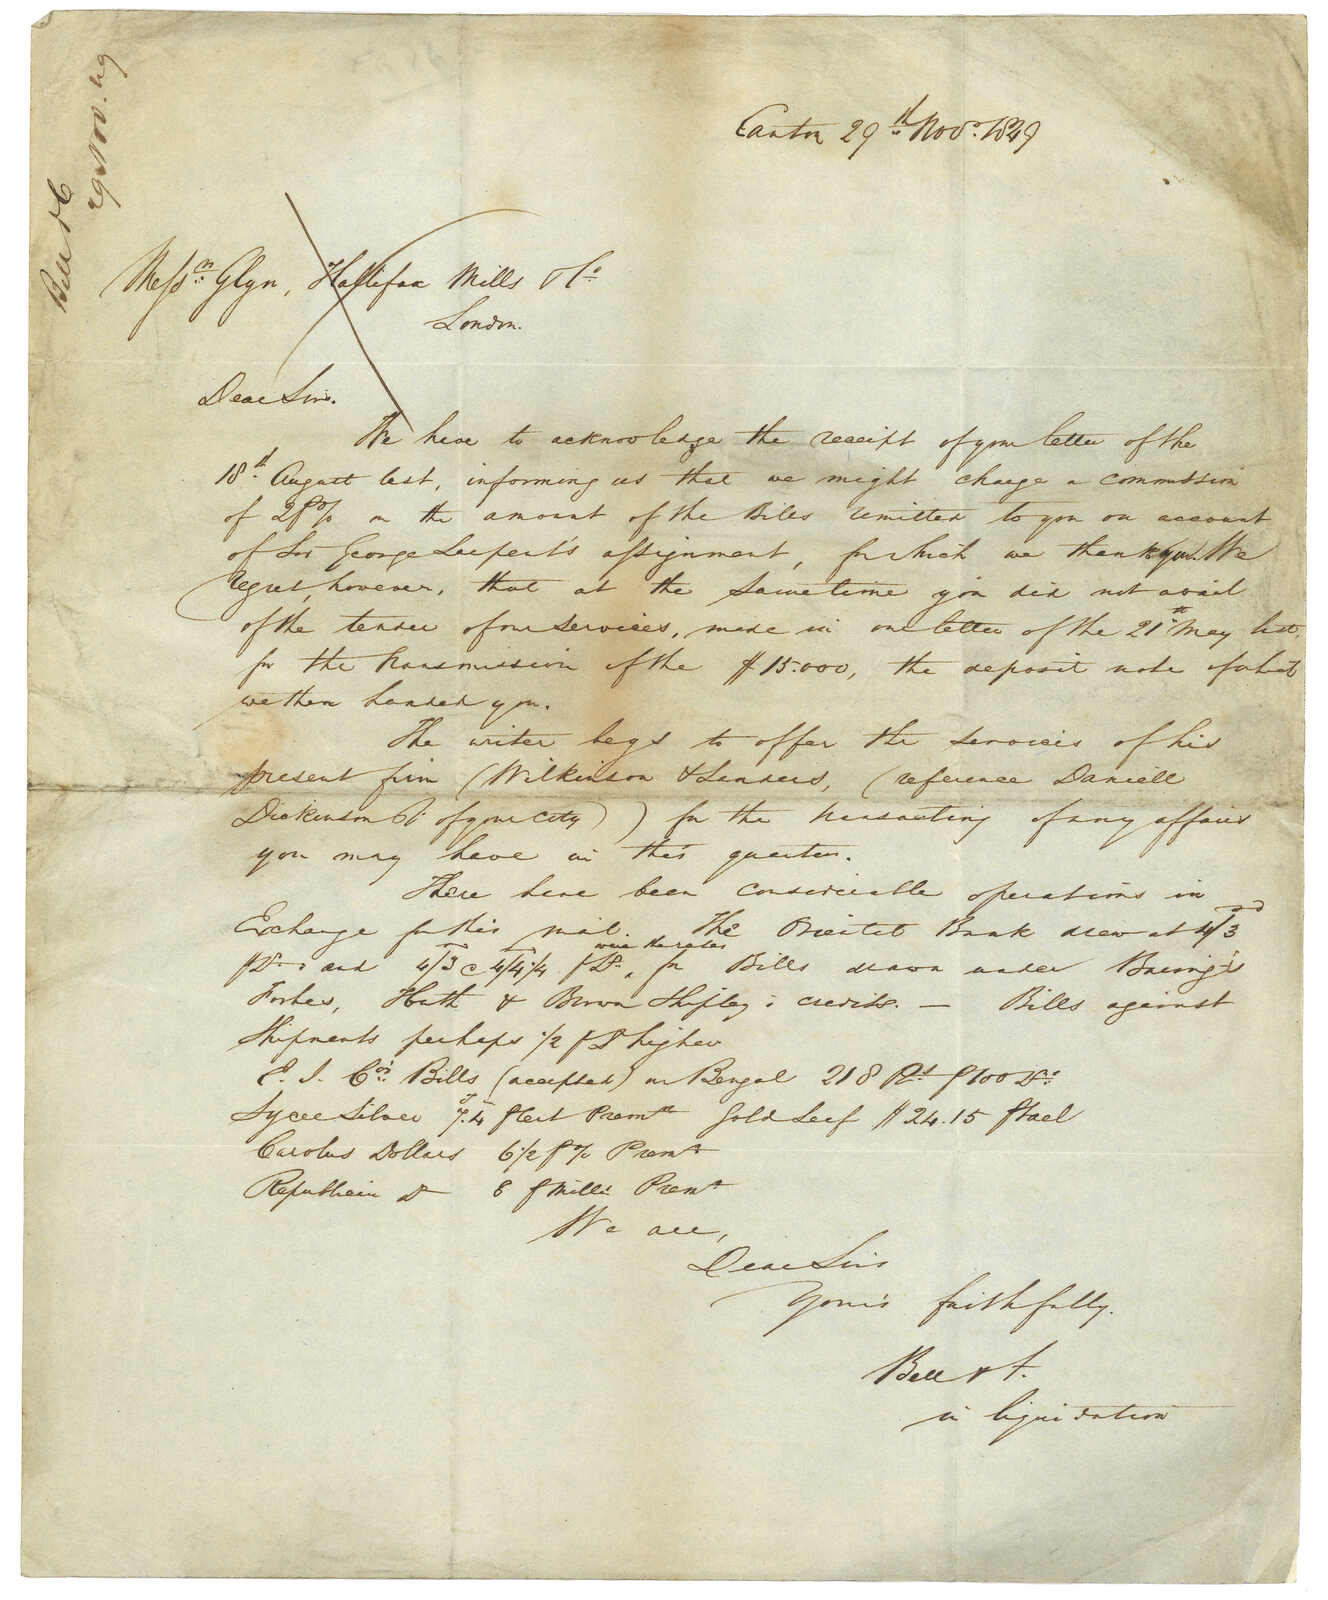 Bell & Co
29 Nov. 49
Canton 29th Novr. 1849
Messrs. Glyn, Hallifax Mills & Co.
London.
Dear Sirs.
We have to acknowledge the receipt of your letter of the
18th August last, informing us that we might charge a commission
of 2 P% on the amount of the Bills remitted to you on account
of Sir George Larpent's assignment, for which we thank you. We
regret, however, that at the same time you did not avail
of the tender of our services, made in our letter of the 21st May last,
for the transmission of the $15.000, the deposit note of which
we then handed you.
The writer begs to offer the services of his
present firm (Wilkinson & Sanders, (reference Daniell
Dickinson & Co of your City)) for the transacting of any affairs
you may have in this quarter.
There have been considerable operations in
Exchange for this mail. The Oriental Bank drew at 4/3
P D. and 4/3 @ 4/4 1/4 P D. were the rates for Bills drawn under Baring's
Forbes, Huth & Brown Shipley's credits. — Bills against
Shipments perhaps 1/2 P D higher
E. I. Co's. Bills (accepted) on Bengal 218 Rs P 100 Ds.
Sycee Silver 7.4 P Cent Premm Gold Leaf $24.15 P tael
Carolus Dollars 6 1/2 P% Premm
Republican D 8 P Mille Premm
We are,
Dear Sirs
Yours faithfully.
Bell & Co.
in liquidation